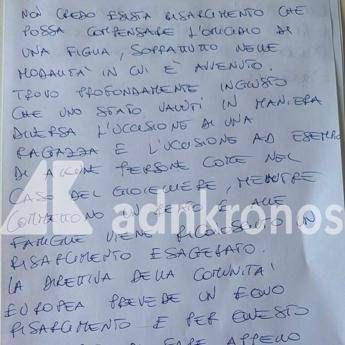 NON CREDO ESISTA RISARCIMENTO CHE
POSSA COMPENSARE L'OMICIDIO DI
UNA FIGLIA, SOPRATTUTTO NELLE
MODALITA' IN CUI E' AVVENUTO.
TROVO PROFONDAMENTE INGIUSTO
CHE UNO STATO VALUTI IN MANIERA
DIVERSA L'UCCISIONE DI UNA
RAGAZZA E L'UCCISIONE AD ESEMPIO
DI ALCUNE PERSONE COME NEL
CASO DEL GIOIELLIERE, MENTRE
COMMETTONO UN REATO E ALLE
adnkronos
FAMIGLIE VIENE RICONOSCIUTO UN
RISARCIMENTO ESAGERATO.
LA DIRETTIVA DELLA COMUNITA'
EUROPEA PREVEDE UN EQUO
RISARCIMENTO E PER QUESTO
FARE APPELLO